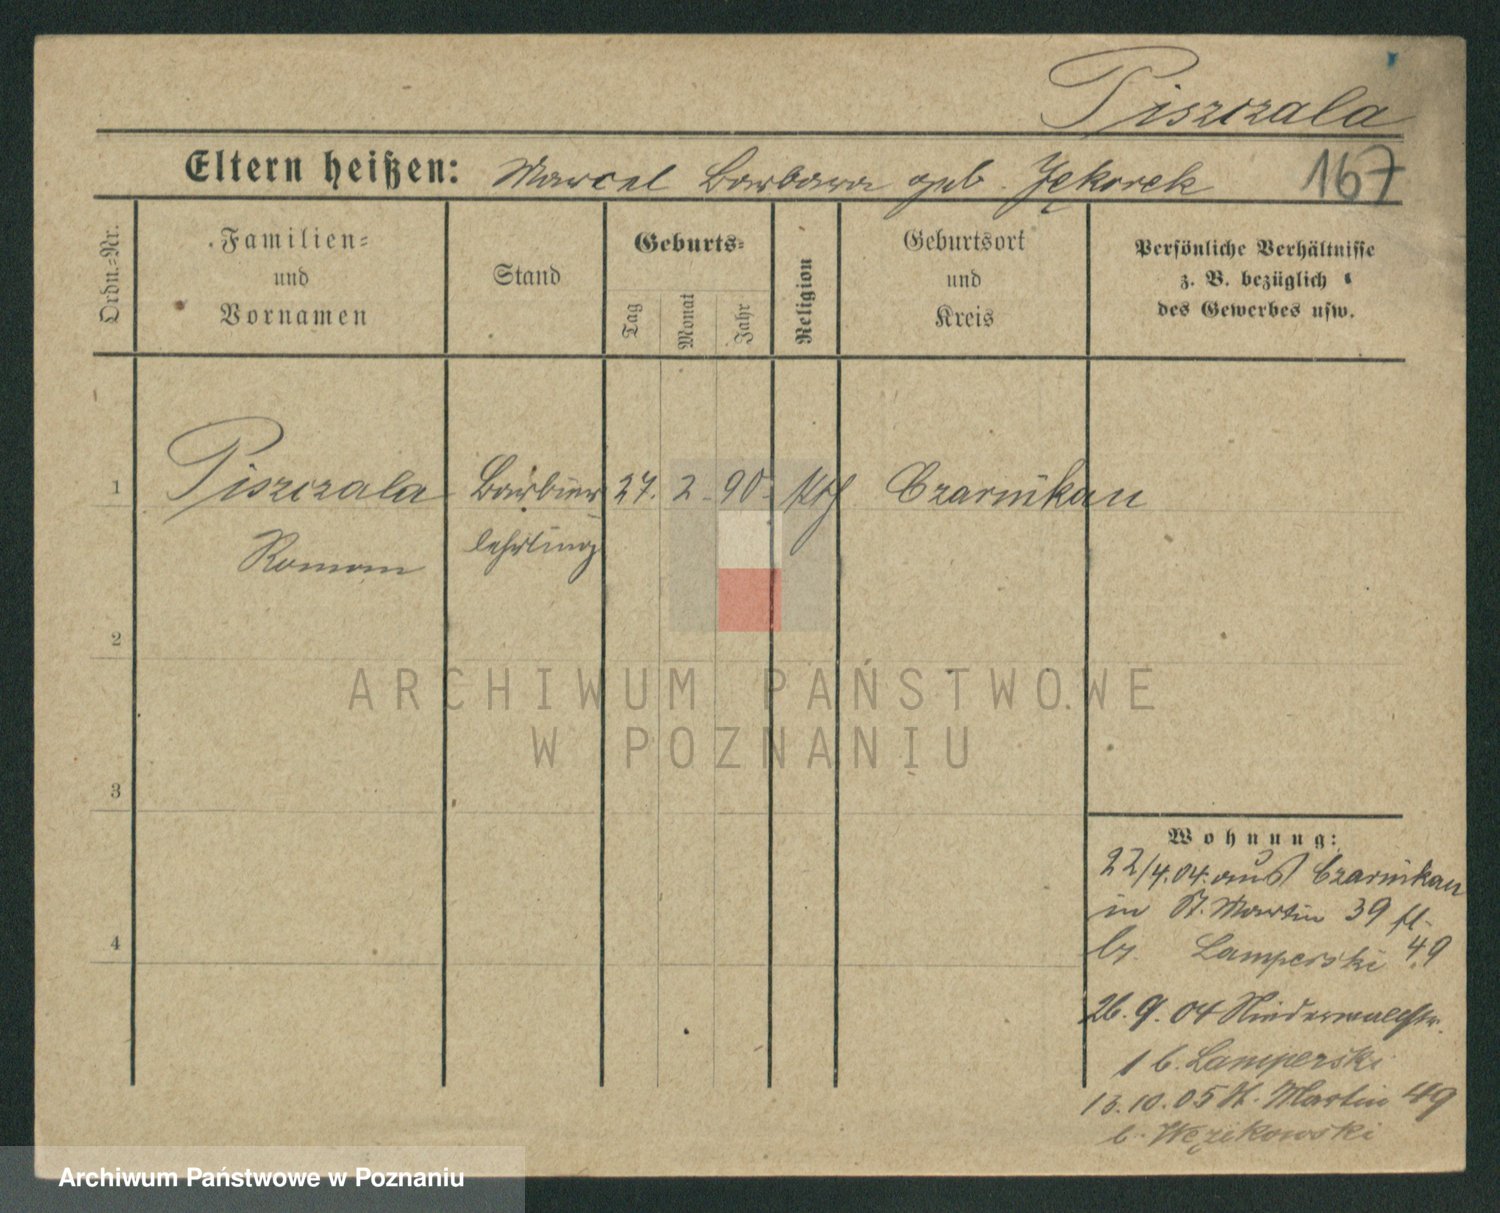 Piszczala
Eltern heißen: Marcel Barbara geb. Jękorek
167
Ordn.-Nr.
Familien-
und
Vornamen
Stand
Geburts-
Tag
Monat
Jahr
Religion
Geburtsort
und
Kreis
Persönliche Verhältnisse
z. B. bezüglich
des Gewerbes usw.
1 Piszczala Barbier 27. 2. 90. kth Czarnikau
Roman lehrling
2
3
4
Wohnung:
22/4.04. aus Czarnikau
in St. Martin 39
Lamperski 49
26. 9. 04 Niederwallstr.
1 b. Lamperski
13. 10. 05 St. Martin 49
b. Węzikowski
ARCHIWUM PAŃSTWOWE
W POZNANIU
Archiwum Państwowe w Poznaniu